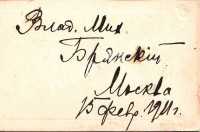 Влад. Мих.
Брянскій
Москва
15 февр. 1911 г.